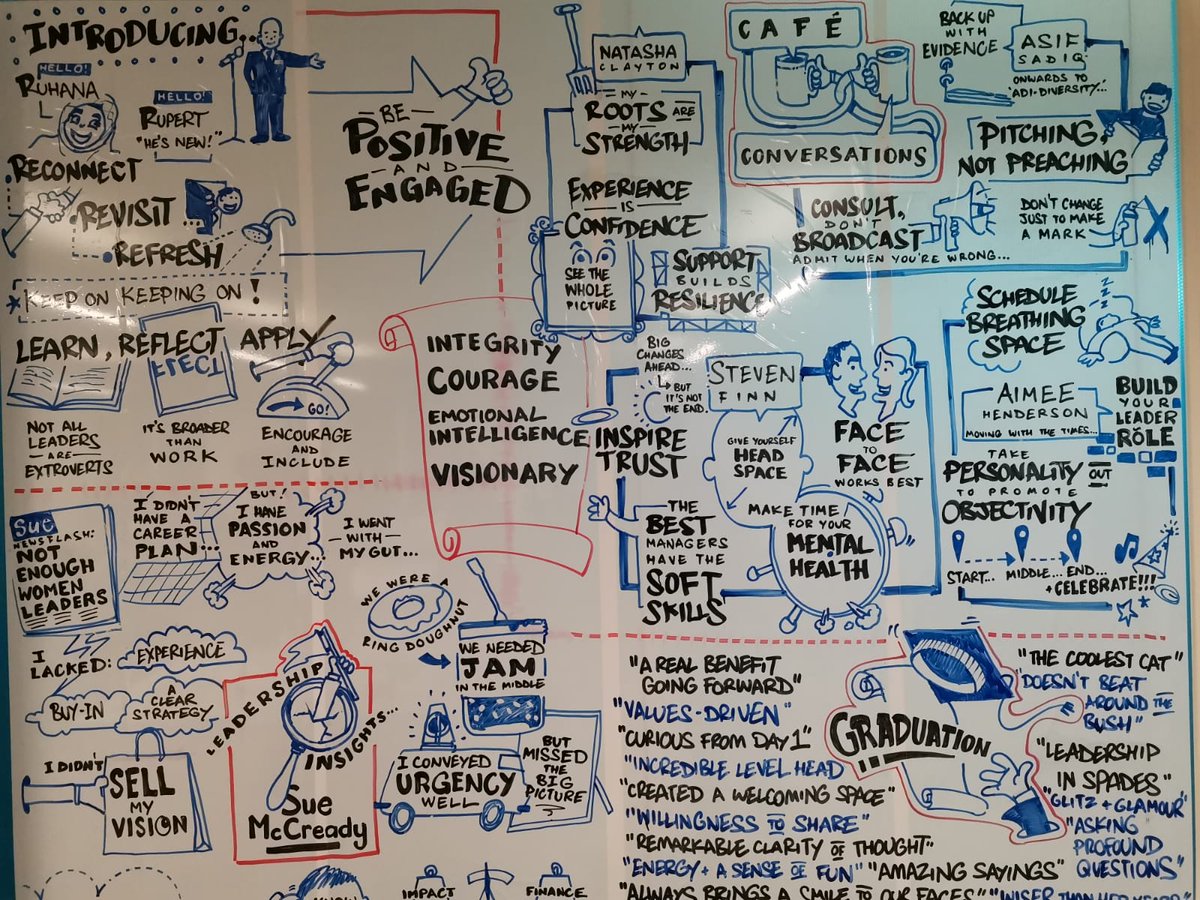 INTRODUCING...
HELLO!
RUHANA
HELLO!
RUPERT
"HE'S NEW!"
RECONNECT
REVISIT...
REFRESH
* KEEP ON KEEPING ON!
LEARN, REFLECT, APPLY
REFLECT
GO!
NOT ALL
LEADERS
ARE
EXTROVERTS
IT'S BROADER
THAN
WORK
ENCOURAGE
AND
INCLUDE
BE
POSITIVE
AND
ENGAGED
NATASHA
CLAYTON
MY
ROOTS ARE
MY
STRENGTH
EXPERIENCE
IS
CONFIDENCE
SEE THE
WHOLE
PICTURE
SUPPORT
BUILDS
RESILIENCE
CAFÉ
CONVERSATIONS
BACK UP
WITH
EVIDENCE
ASIF
SADIQ
ONWARDS TO
'ADI-DIVERSITY'...
PITCHING,
NOT PREACHING
CONSULT,
DON'T
BROADCAST
ADMIT WHEN YOU'RE WRONG...
DON'T CHANGE
JUST TO MAKE
A MARK
INTEGRITY
COURAGE
EMOTIONAL
INTELLIGENCE
VISIONARY
BIG
CHANGES
AHEAD...
BUT
IT'S NOT
THE END.
INSPIRE
TRUST
STEVEN
FINN
GIVE YOURSELF
HEAD
SPACE
FACE
TO
FACE
WORKS BEST
THE
BEST
MANAGERS
HAVE THE
SOFT
SKILLS
MAKE TIME
FOR YOUR
MENTAL
HEALTH
SCHEDULE
BREATHING
SPACE
Z Z Z
AIMEE
HENDERSON
MOVING WITH THE TIMES...
BUILD
YOUR
LEADER
RÔLE
TAKE
PERSONALITY OUT
TO PROMOTE
OBJECTIVITY
START... MIDDLE... END...
+ CELEBRATE!!!
Sue
NEWSFLASH:
NOT
ENOUGH
WOMEN
LEADERS
I DIDN'T
HAVE A
CAREER
PLAN...
BUT!
I HAVE
PASSION
AND
ENERGY...
I WENT
WITH
MY GUT...
I
LACKED:
EXPERIENCE
BUY-IN
A
CLEAR
STRATEGY
I DIDN'T
SELL
MY
VISION
LEADERSHIP
INSIGHTS...
Sue
McCready
WE WERE A
RING DOUGHNUT
WE NEEDED
JAM
IN THE MIDDLE
I CONVEYED
URGENCY
WELL
BUT
MISSED
THE
BIG
PICTURE
"A REAL BENEFIT
GOING FORWARD"
"VALUES-DRIVEN"
"CURIOUS FROM DAY 1"
"INCREDIBLE LEVEL HEAD
"CREATED A WELCOMING SPACE"
"WILLINGNESS TO SHARE"
"REMARKABLE CLARITY OF THOUGHT"
"ENERGY + A SENSE OF FUN" "AMAZING SAYINGS"
"ALWAYS BRINGS A SMILE TO OUR FACES" "WISER THAN HER YEARS"
GRADUATION
"THE COOLEST CAT"
"DOESN'T BEAT
AROUND THE
BUSH"
"LEADERSHIP
IN SPADES"
"GLITZ + GLAMOUR"
"ASKING
PROFOUND
QUESTIONS"
IMPACT
FINANCE